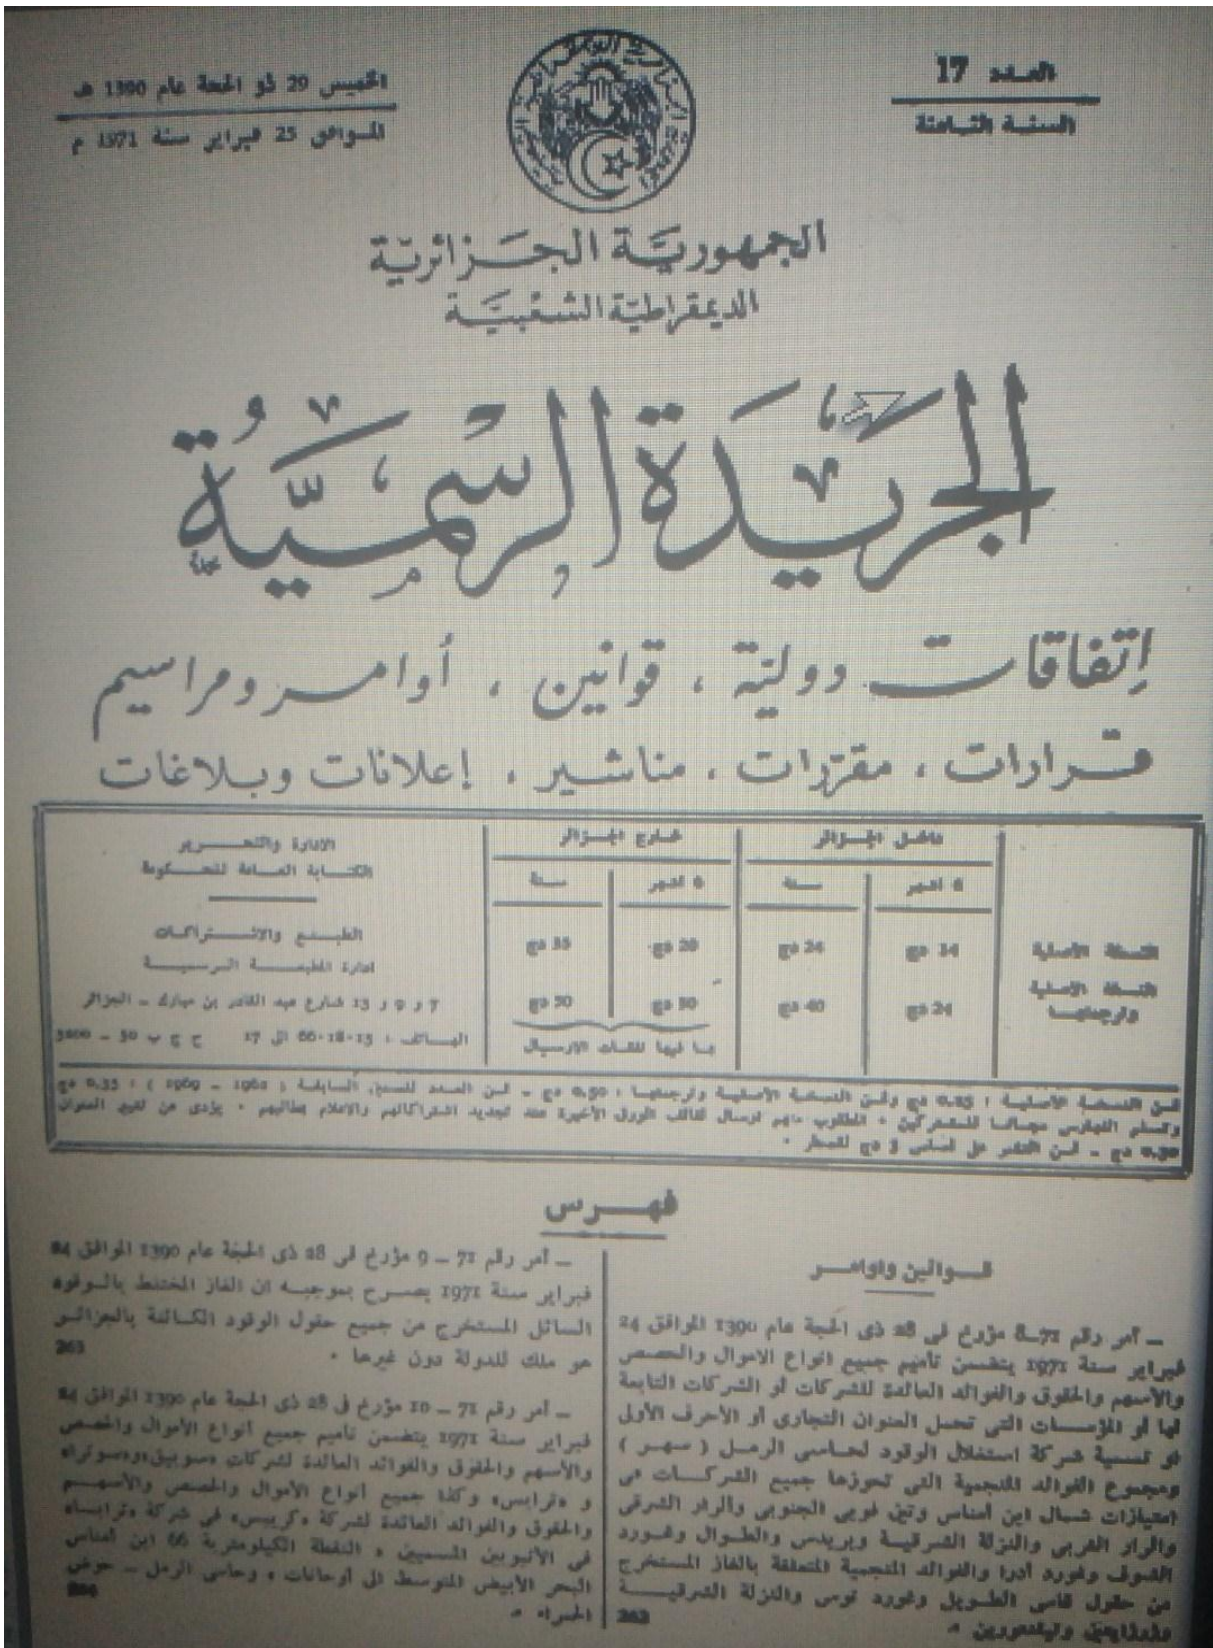 العدد 17
السنة الثامنة
الخميس 29 ذو الحجة عام 1390 هـ
الموافق 25 فبراير سنة 1971 م
الجمهوريّة الجزائريّة
الديمقراطيّة الشعبيّة
الجريدة الرسميّة
إتفاقات دولية ، قوانين ، أوامر ومراسيم
قرارات ، مقررات ، مناشير ، إعلانات وبلاغات
داخل الجزائر
خارج الجزائر
6 أشهر
سنة
6 أشهر
سنة
النسخة الأصلية
14 دج
24 دج
20 دج
35 دج
النسخة الأصلية وترجمتها
24 دج
40 دج
30 دج
50 دج
بما فيها نفقات الارسال
الادارة والتحرير
الكتابة العامة للحكومة
الطبع والاشتراكات
ادارة المطبعة الرسمية
7 و 9 و 13 شارع عبد القادر بن مبارك ـ الجزائر
الهاتف : 15-18-66 الى 17 ح ج ب 50 ـ 3200
ثمن النسخة الأصلية : 0,25 دج وثمن النسخة الأصلية وترجمتها : 0,50 دج ـ ثمن العدد للسنين السابقة ( 1962 ـ 1969 ) : 0,35 دج
وتسلم الفهارس مجانا للمشتركين • المطلوب منهم ارسال لفائف الورق الأخيرة عند تجديد اشتراكاتهم والاعلام بمطالبهم • يؤدى عن تغيير العنوان
0,30 دج ـ ثمن النشر على أساس 3 دج للسطر •
فهرس
قوانين وأوامر
ـ أمر رقم 71ـ8 مؤرخ فى 28 ذى الحجة عام 1390 الموافق 24
فبراير سنة 1971 يتضمن تأميم جميع أنواع الاموال والحصص
والأسهم والحقوق والفوائد العائدة للشركات أو الشركات التابعة
لها أو المؤسسات التى تحمل العنوان التجارى أو الأحرف الأولى
أو تسمية شركة استغلال الوقود لحاسى الرمل ( سهر )
ومجموع الفوائد المنجمية التى تحوزها جميع الشركات فى
امتيازات شمال اين أمناس وتين فويى الجنوبى والرار الشرقى
والرار الغربى والنزلة الشرقية وبريدس والطوال وغورد
الشوف وغورد أدرا والفوائد المنجمية المتعلقة بالغاز المستخرج
من حقول قاسى الطويل وغورد نوس والنزلة الشرقية
وتيلمسورين • 262
ـ أمر رقم 71 ـ 9 مؤرخ فى 28 ذى الحجة عام 1390 الموافق 24
فبراير سنة 1971 يصرح بموجبه ان الغاز المختلط بالوقود
السائل المستخرج من جميع حقول الوقود الكائنة بالجزائر
هو ملك للدولة دون غيرها • 263
ـ أمر رقم 71 ـ 10 مؤرخ فى 28 ذى الحجة عام 1390 الموافق 24
فبراير سنة 1971 يتضمن تأميم جميع أنواع الأموال والحصص
والأسهم والحقوق والفوائد العائدة لشركات «سوبيق» و«سوترا»
و «ترابس» وكذا جميع أنواع الأموال والحصص والأسهم
والحقوق والفوائد العائدة لشركة «كريبس» فى شركة «ترابسا»
فى الأنبوبين المسميين « النقطة الكيلومترية 66 اين أمناس
البحر الأبيض المتوسط الى أوحانات » وحاسى الرمل ـ حوض
الحمراء » • 264